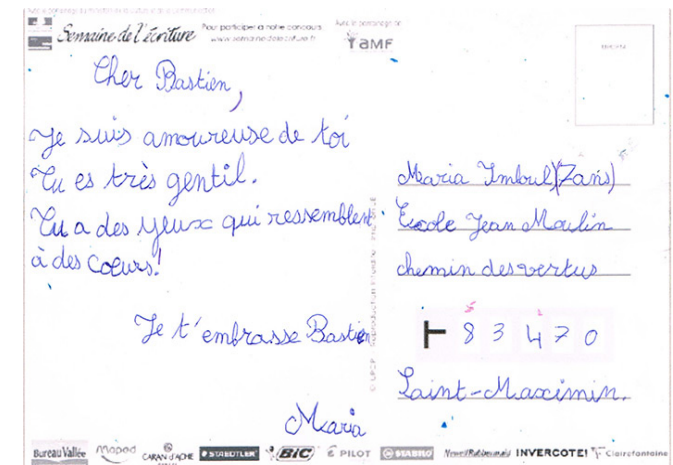 Semaine de l'écriture
Pour participer à notre concours
www.semainedelecriture.fr
AMF
Cher Bastien,
Je suis amoureuse de toi
Tu es très gentil.
Tu a des yeux qui ressemblent
à des coeurs!
Je t'embrasse Bastien
Maria
Maria Imboul (7ans)
Ecole Jean Moulin
chemin des vertus
83470
Saint-Maximin.
Bureau Vallée maped CARAN D'ACHE STAEDTLER BIC PILOT STABILO INVERCOTE! Clairefontaine